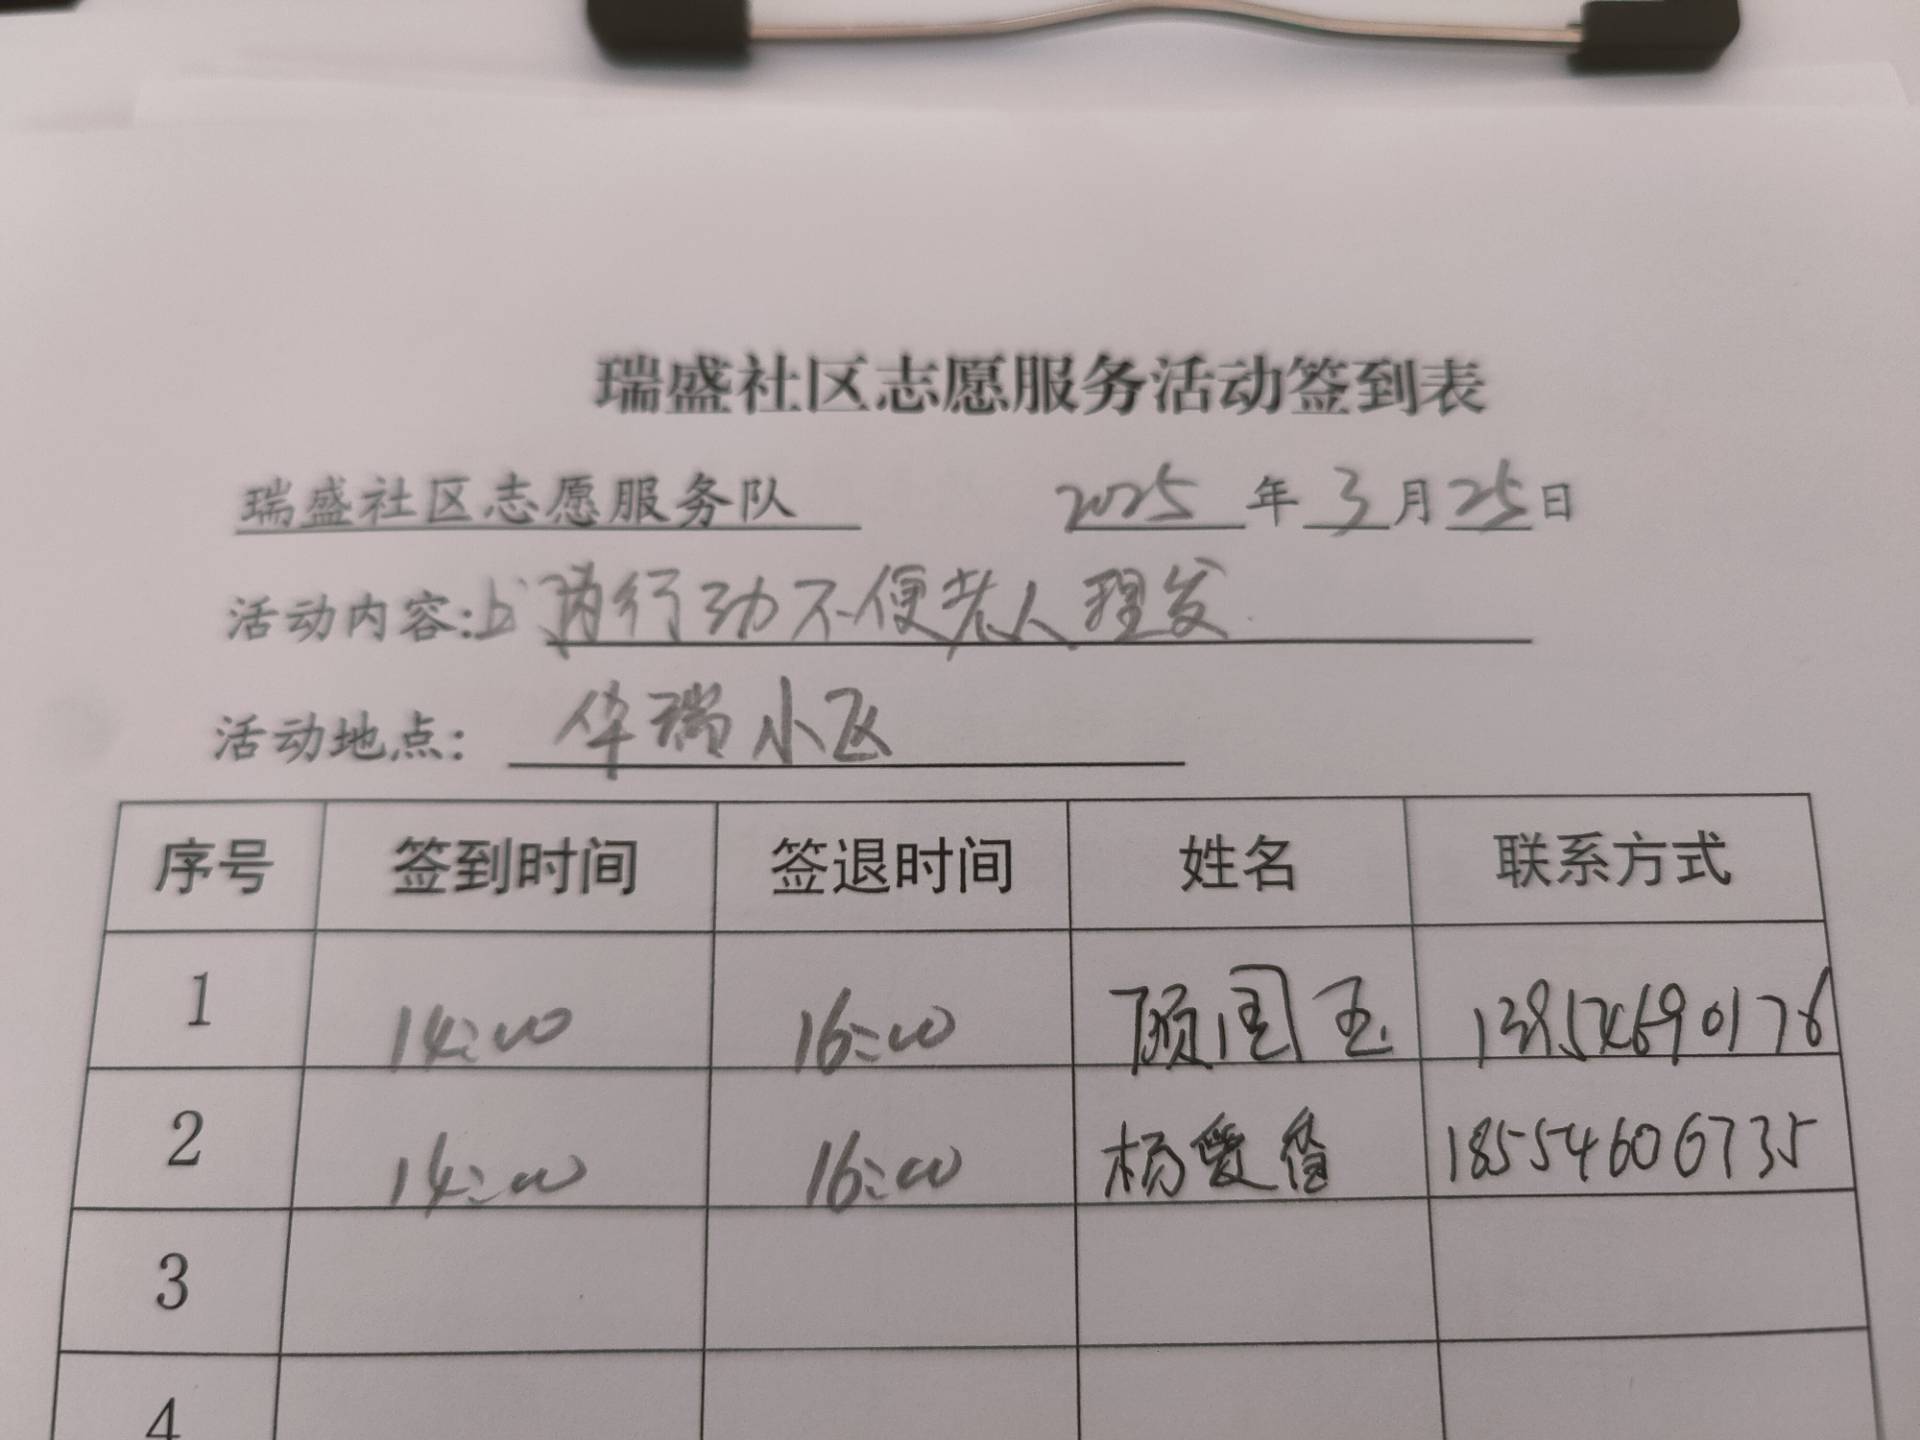 瑞盛社区志愿服务活动签到表
瑞盛社区志愿服务队 2025年3月25日
活动内容:上门为行动不便老人理发
活动地点: 华瑞小区
序号 签到时间 签退时间 姓名 联系方式
1 14:00 16:00 顾国玉
2 14:00 16:00 杨爱香 18554606735
3
4